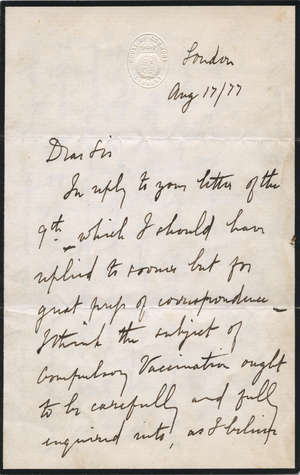 London
Aug 17/77
Dear Sir
In reply to your letter of the
9th which I should have
replied to sooner but for
great press of correspondence –
I think the subject of
Compulsory Vaccination ought
to be carefully and fully
enquired into, as I believe